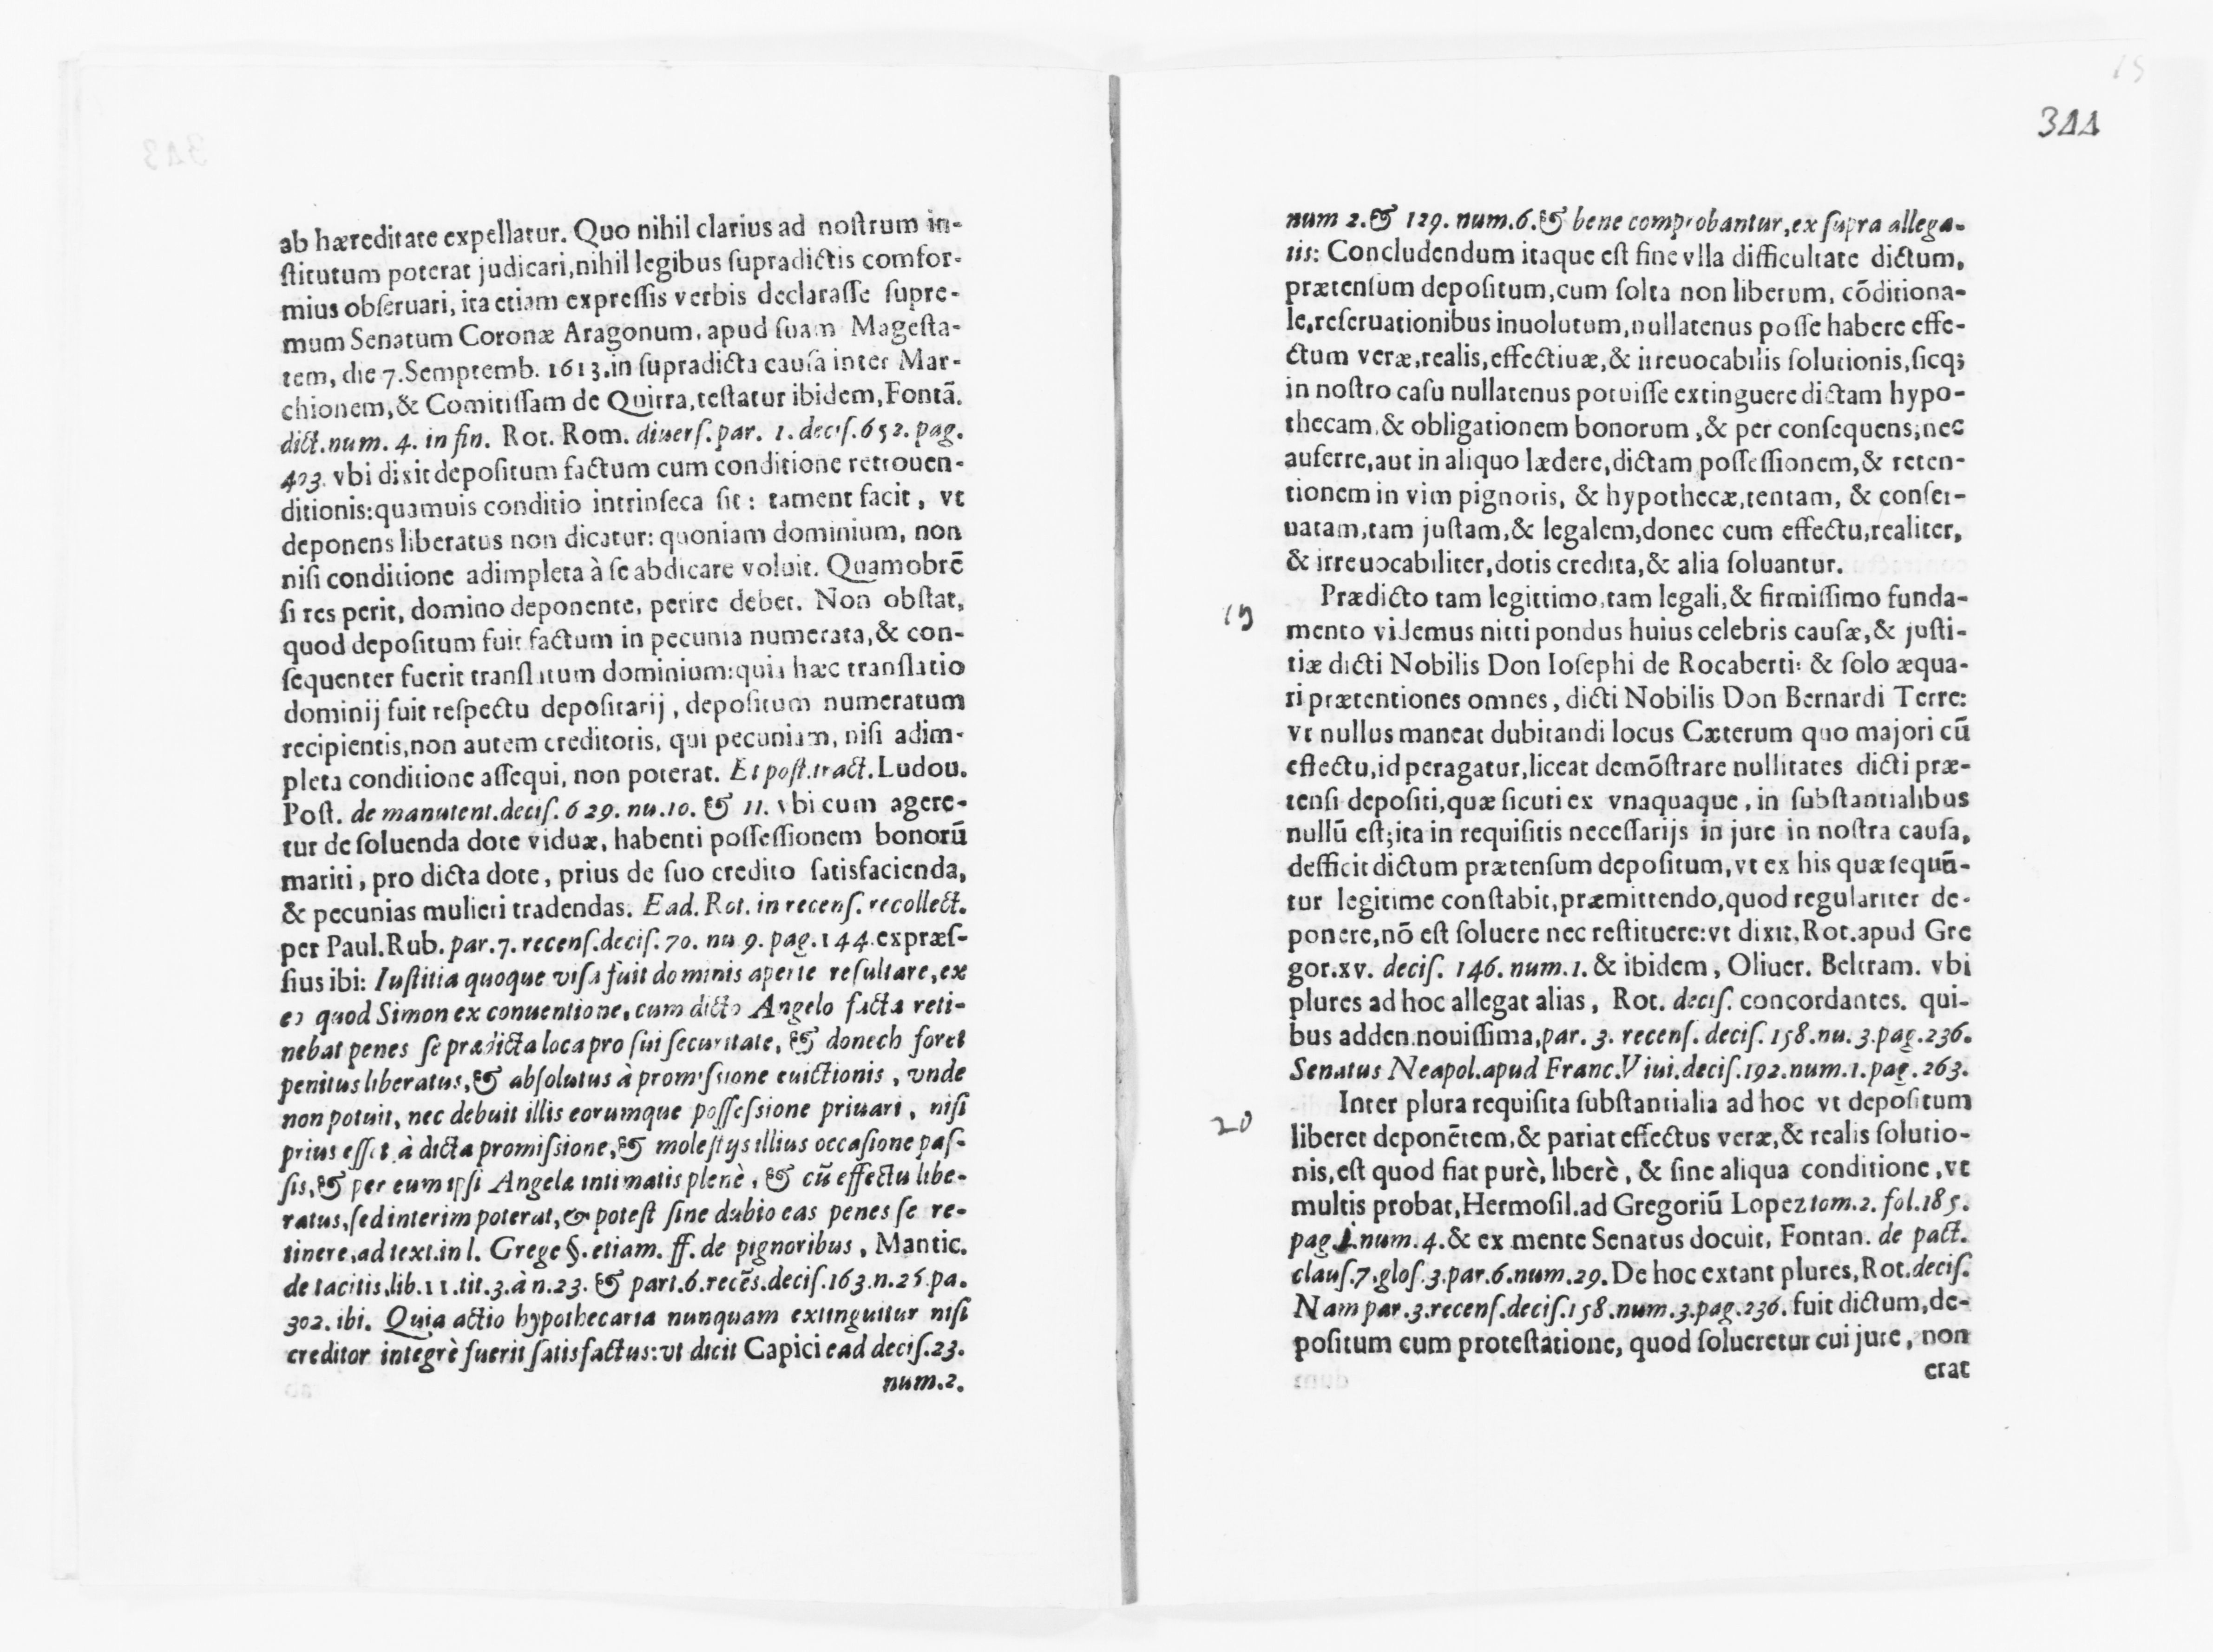 ab hæreditate expellatur. Quo nihil clarius ad nostrum in-
ſtitutum poterat judicari, nihil legibus ſupradictis comfor-
mius obſeruari, ita etiam expreſſis verbis declaraſſe ſupre-
mum Senatum Coronæ Aragonum, apud ſuam Mageſta-
tem, die 7. Semptemb. 1613. in ſupradicta cauſa inter Mar-
chionem, & Comitiſſam de Quirra, teſtatur ibidem, Fontã.
dict. num. 4. in fin. Rot. Rom. diuerſ. par. 1. deciſ. 652. pag.
403. vbi dixit depoſitum factum cum conditione retrouen-
ditionis: quamuis conditio intrinſeca ſit: tament facit, vt
deponens liberatus non dicatur: quoniam dominium, non
niſi conditione adimpleta à ſe abdicare voluit. Quamobrẽ
ſi res perit, domino deponente, perire debet. Non obſtat,
quod depoſitum fuit factum in pecunia numerata, & con-
ſequenter fuerit tranſlatum dominium: quia hæc tranſlatio
dominij fuit reſpectu depoſitarij, depoſitum numeratum
recipientis, non autem creditoris, qui pecuniam, niſi adim-
pleta conditione aſſequi, non poterat. Et poſt. tract. Ludou.
Poſt. de manutent. deciſ. 629. nu. 10. & 11. vbi cum agere-
tur de ſoluenda dote viduæ, habenti poſſeſſionem bonorũ
mariti, pro dicta dote, prius de ſuo credito ſatisfacienda,
& pecunias mulieri tradendas. Ead. Rot. in recenſ. recollect.
per Paul. Rub. par. 7. recenſ. deciſ. 70. nu 9. pag. 144. expræſ-
ſius ibi: Iuſtitia quoque viſa fuit dominis aperte reſultare, ex
eo quod Simon ex conuentione, cum dicto Angelo facta reti-
nebat penes ſe prædicta loca pro ſui ſecuritate, & donech foret
penitus liberatus, & abſolutus à promiſsione euictionis, vnde
non potuit, nec debuit illis eorumque poſſeſsione priuari, niſi
prius eſſet à dicta promiſsione, & moleſtijs illius occaſione paſ-
ſis, & per eum ipſi Angela intimatis plenè, & cũ effectu libe-
ratus, ſed interim poterat, & poteſt ſine dubio eas penes ſe re-
tinere, ad text. in l. Grege §. etiam. ff. de pignoribus, Mantic.
de tacitis, lib. 11. tit. 3. à n. 23. & part. 6. recẽs. deciſ. 163. n. 25. pa.
302. ibi. Quia actio hypothecaria nunquam extinguitur niſi
creditor integrè fuerit ſatisfactus: vt dicit Capici ead deciſ. 23.
num. 2.
344
num 2. & 129. num. 6. & bene comprobantur, ex ſupra allega-
tis: Concludendum itaque eſt ſine vlla difficultate dictum,
prætenſum depoſitum, cum ſolta non liberum, cõditiona-
le, reſeruationibus inuolutum, nullatenus poſſe habere effe-
ctum veræ, realis, effectiuæ, & irreuocabilis ſolutionis, ſicq;
in noſtro caſu nullatenus potuiſſe extinguere dictam hypo-
thecam, & obligationem bonorum, & per conſequens, nec
auferre, aut in aliquo lædere, dictam poſſeſſionem, & reten-
tionem in vim pignoris, & hypothecæ, tentam, & conſer-
uatam, tam juſtam, & legalem, donec cum effectu, realiter,
& irreuocabiliter, dotis credita, & alia ſoluantur.
19
Prædicto tam legittimo, tam legali, & firmiſſimo funda-
mento videmus nitti pondus huius celebris cauſæ, & juſti-
tiæ dicti Nobilis Don Ioſephi de Rocaberti: & ſolo æqua-
ri prætentiones omnes, dicti Nobilis Don Bernardi Terre:
vt nullus maneat dubitandi locus Cæterum quo majori cũ
effectu, id peragatur, liceat demõſtrare nullitates dicti præ-
tenſi depoſiti, quæ ſicuti ex vnaquaque, in ſubſtantialibus
nullũ eſt; ita in requiſitis neceſſarijs in jure in noſtra cauſa,
defficit dictum prætenſum depoſitum, vt ex his quæ ſequũ-
tur legitime conſtabit, præmittendo, quod regulariter de-
ponere, nõ eſt ſoluere nec reſtituere: vt dixit, Rot. apud Gre
gor. xv. deciſ. 146. num. 1. & ibidem, Oliuer. Beltram. vbi
plures ad hoc allegat alias, Rot. deciſ. concordantes. qui-
bus adden. nouiſſima, par. 3. recenſ. deciſ. 158. nu. 3. pag. 236.
Senatus Neapol. apud Franc. Viui. deciſ. 192. num. 1. pag. 263.
20
Inter plura requiſita ſubſtantialia ad hoc vt depoſitum
liberet deponẽtem, & pariat effectus veræ, & realis ſolutio-
nis, eſt quod fiat purè, liberè, & ſine aliqua conditione, vt
multis probat, Hermoſil. ad Gregoriũ Lopez tom. 2. fol. 185.
pag. 1. num. 4. & ex mente Senatus docuit, Fontan. de pact.
clauſ. 7. gloſ. 3. par. 6. num. 29. De hoc extant plures, Rot. deciſ.
Nam par. 3. recenſ. deciſ. 158. num. 3. pag. 236. fuit dictum, de-
poſitum cum proteſtatione, quod ſolueretur cui jure, non
erat